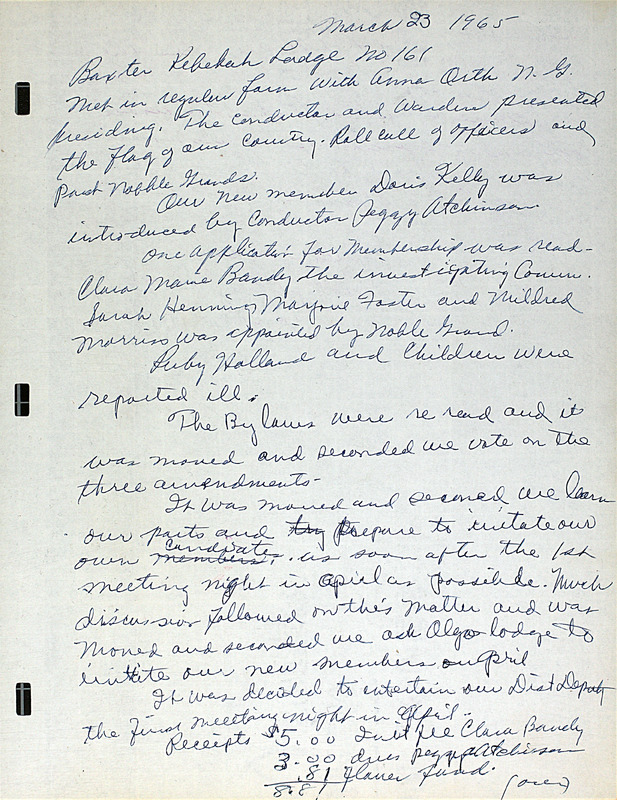 March 23 1965
Baxter Rebekah Lodge No 161
Met in regular form with Anna Orth N. G.
presiding. The Conductor and Warden presented
the flag of our Country. Roll call of officers and
past Nobble Grands.
Our new member Doris Kelly was
introduced by Conductor Peggy Atchinson.
One application for membership was read -
Clara Mame Bandy the investigating Comm.
Sarah Henning Marjorie Foster and Mildred
Morriss was appointed by Noble Grand.
Ruby Holland and Children were
reported ill.
The By laws were re read and it
was moved and seconded we vote on the
three amendments -
It was moved and seconed we learn
our parts and try prepare to initate our
own members. candidates as soon after the 1st
meeting night in April as possible. Much
discussion followed on this matter and was
moved and seconded we ask Olga lodge to
initite our new members on April
It was decided to entertain our Dist Deputy
the first meeting night in April.
Receipts $5.00 Init fee Clara Bandy
3.00 dues Peggy Atchinson
.81 flower fund.
8.81 (over)